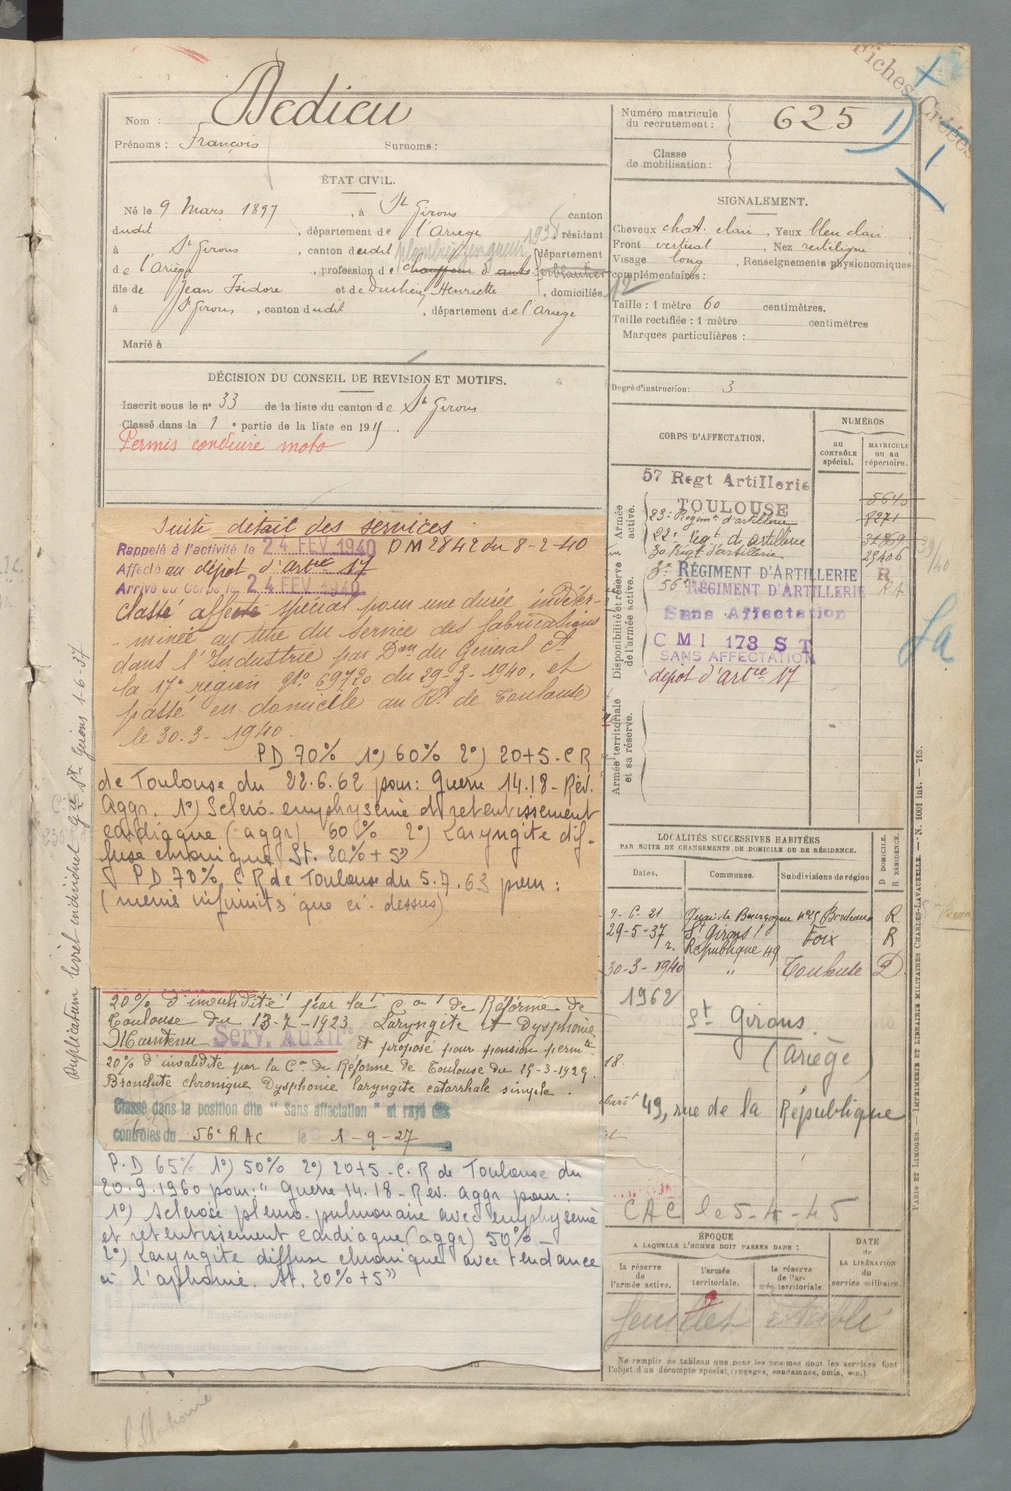 Fiches Créées
Nom : Dedieu
Prénoms : François Surnoms :
Numéro matricule du recrutement : 625
Classe de mobilisation :
ÉTAT CIVIL.
Né le 9 Mars 1897, à St Girons canton
dudit, département de l'Ariège, résidant
à St Girons, canton dudit département
de l'Ariège, profession de chauffeur d'auto ferblantier
fils de Jean Isidore et de Henriette, domiciliés
à St Girons, canton dudit, département de l'Ariège
Marié à
SIGNALEMENT.
Cheveux chat. clair, Yeux bleu clair
Front vertical, Nez rectiligne
Visage long, Renseignements physionomiques
complémentaires :
Taille : 1 mètre 60 centimètres.
Taille rectifiée : 1 mètre centimètres
Marques particulières :
Degré d'instruction : 3
DÉCISION DU CONSEIL DE REVISION ET MOTIFS.
Inscrit sous le n° 33 de la liste du canton de St Girons
Classé dans la 1e partie de la liste en 191 .
Permis conduire moto
Suite détail des services
Rappelé à l'activité le 24 FEV 1940 DM 2842 du 8-2-40
Affecté au dépôt d'artie 17
Arrivé au Corps le 24 FEV 1940
Classé affecté spécial pour une durée indéter-
minée au titre du service des fabrications
dans l'Industrie par Don du Général Ct
la 17e région N° 69720 du 29-3-1940, et
passé en domicile au Rt de Toulouse
le 30-3-1940.
PD 70% 1°) 60% 2°) 20+5. CR
de Toulouse du 22.6.62 pour: Guerre 14.18 - Rév.
Aggr. 1°) Scléro-emphysème et retentissement
cardiaque (aggr) 60% 2°) Laryngite dif-
fuse chronique St. 20%+5"
PD 70% CR de Toulouse du 5.7.63 pour:
(même infirmités que ci-dessus)
20% d'invalidité par la Con de Réforme de
Toulouse du 13-7-1923 Laryngite et Dysphonie
Maintenu Serv. Auxil. et proposé pour pension permte
20% d'invalidité par la Con de Réforme de Toulouse du 25-3-1929.
Bronchite chronique Dysphonie laryngite catarrhale simple.
Classé dans la position dite "Sans affectation" et rayé des
contrôles du 56e RAC le 1-9-27
P.D 65% 1°) 50% 2°) 20+5 - C.R de Toulouse du
20.9.1960 pour: "Guerre 14.18 - Rév. aggr pour:
1°) Sclérose pleuro-pulmonaire avec emphysème
et retentissement cardiaque (aggr) 50% -
2°) Laryngite diffuse chronique avec tendance
à l'aphonie. St. 20%+5"
Duplicatum livret individuel Gie St Girons 1-6-37
CORPS D'AFFECTATION.
NUMÉROS
au CONTRÔLE spécial.
MATRICULE ou au RÉPERTOIRE.
Armée active.
Disponibilité et réserve de l'armée active.
Armée territoriale et sa réserve.
57 Regt Artillerie
TOULOUSE
23e Régiment d'artillerie
22e régt d'artillerie
30 Régt d'artillerie
RÉGIMENT D'ARTILLERIE R
56e RÉGIMENT D'ARTILLERIE
Sans Affectation
CMI 173 ST
SANS AFFECTATION
dépôt d'artie 17
LOCALITÉS SUCCESSIVES HABITÉES
PAR SUITE DE CHANGEMENTS DE DOMICILE OU DE RÉSIDENCE.
Dates. Communes. Subdivisions de région D DOMICILE. R RÉSIDENCE.
9-6-21 Quai de Bourgogne n°25 Bordeaux R
29-5-37 St Girons r. République 49 Foix R
30-3-1940 " Toulouse D
1962 St Girons.
(Ariège)
49, rue de la République
CAC le 5-4-45
ÉPOQUE
A LAQUELLE L'HOMME DOIT PASSER DANS :
la réserve de l'armée active. l'armée territoriale. la réserve de l'armée territoriale.
DATE de LA LIBÉRATION du service militaire.
Ne remplir ce tableau que pour les hommes dont les services font
l'objet d'un décompte spécial (engagés, condamnés, omis, etc.).
PARIS ET LIMOGES. — IMPRIMERIE ET LIBRAIRIE MILITAIRES CHARLES-LAVAUZELLE. — N. 1001 int. — 715.